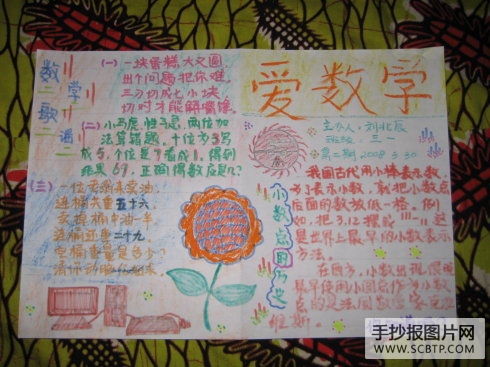 爱数学
主办人：刘北辰
班级：三一
第二期 2008.3.30
数学歌谣
(一) 一块蛋糕大又圆,
出个问题把你难,
三刀切成七小块,
切对才能解嘴馋
(二) 小马虎 性子急, 两位加
法算错题, 十位
成5, 个位是 看成1, 得到
结果 69, 正确得数应是几?
(三) 一位
进桶共重五十六
卖掉桶中油一半
连桶还重二十九
空桶重量是多少?
小数点
我国古代用小棒表示数,
为了表示小数, 就把小数点
后面的数放低一格, 例
如, 把3.12摆成
是世界上最早的小数表示
方法。
在西方, 小数出现很晚,
最早使用小圆点作为小数
点的是 数学家克拉
维斯。
手抄报图片网
WWW.SCBTP.COM